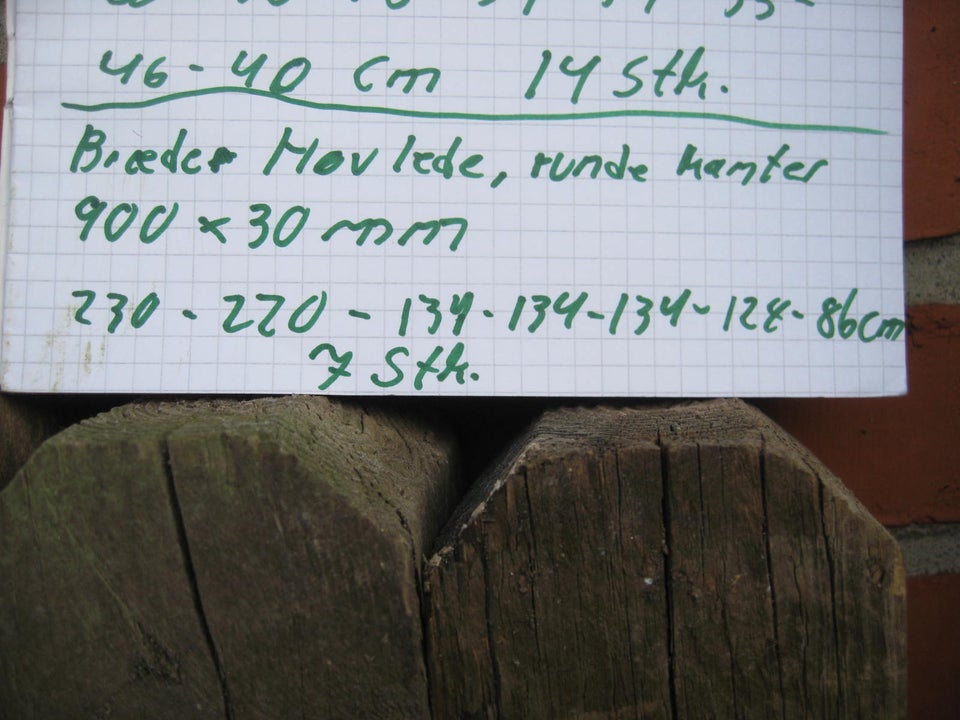 46 - 40 cm 14 Stk.
Bræder Høvlede, runde kanter
900 x 30 mm
230 - 220 - 134 - 134 - 134 - 124 - 86 cm
7 Stk.